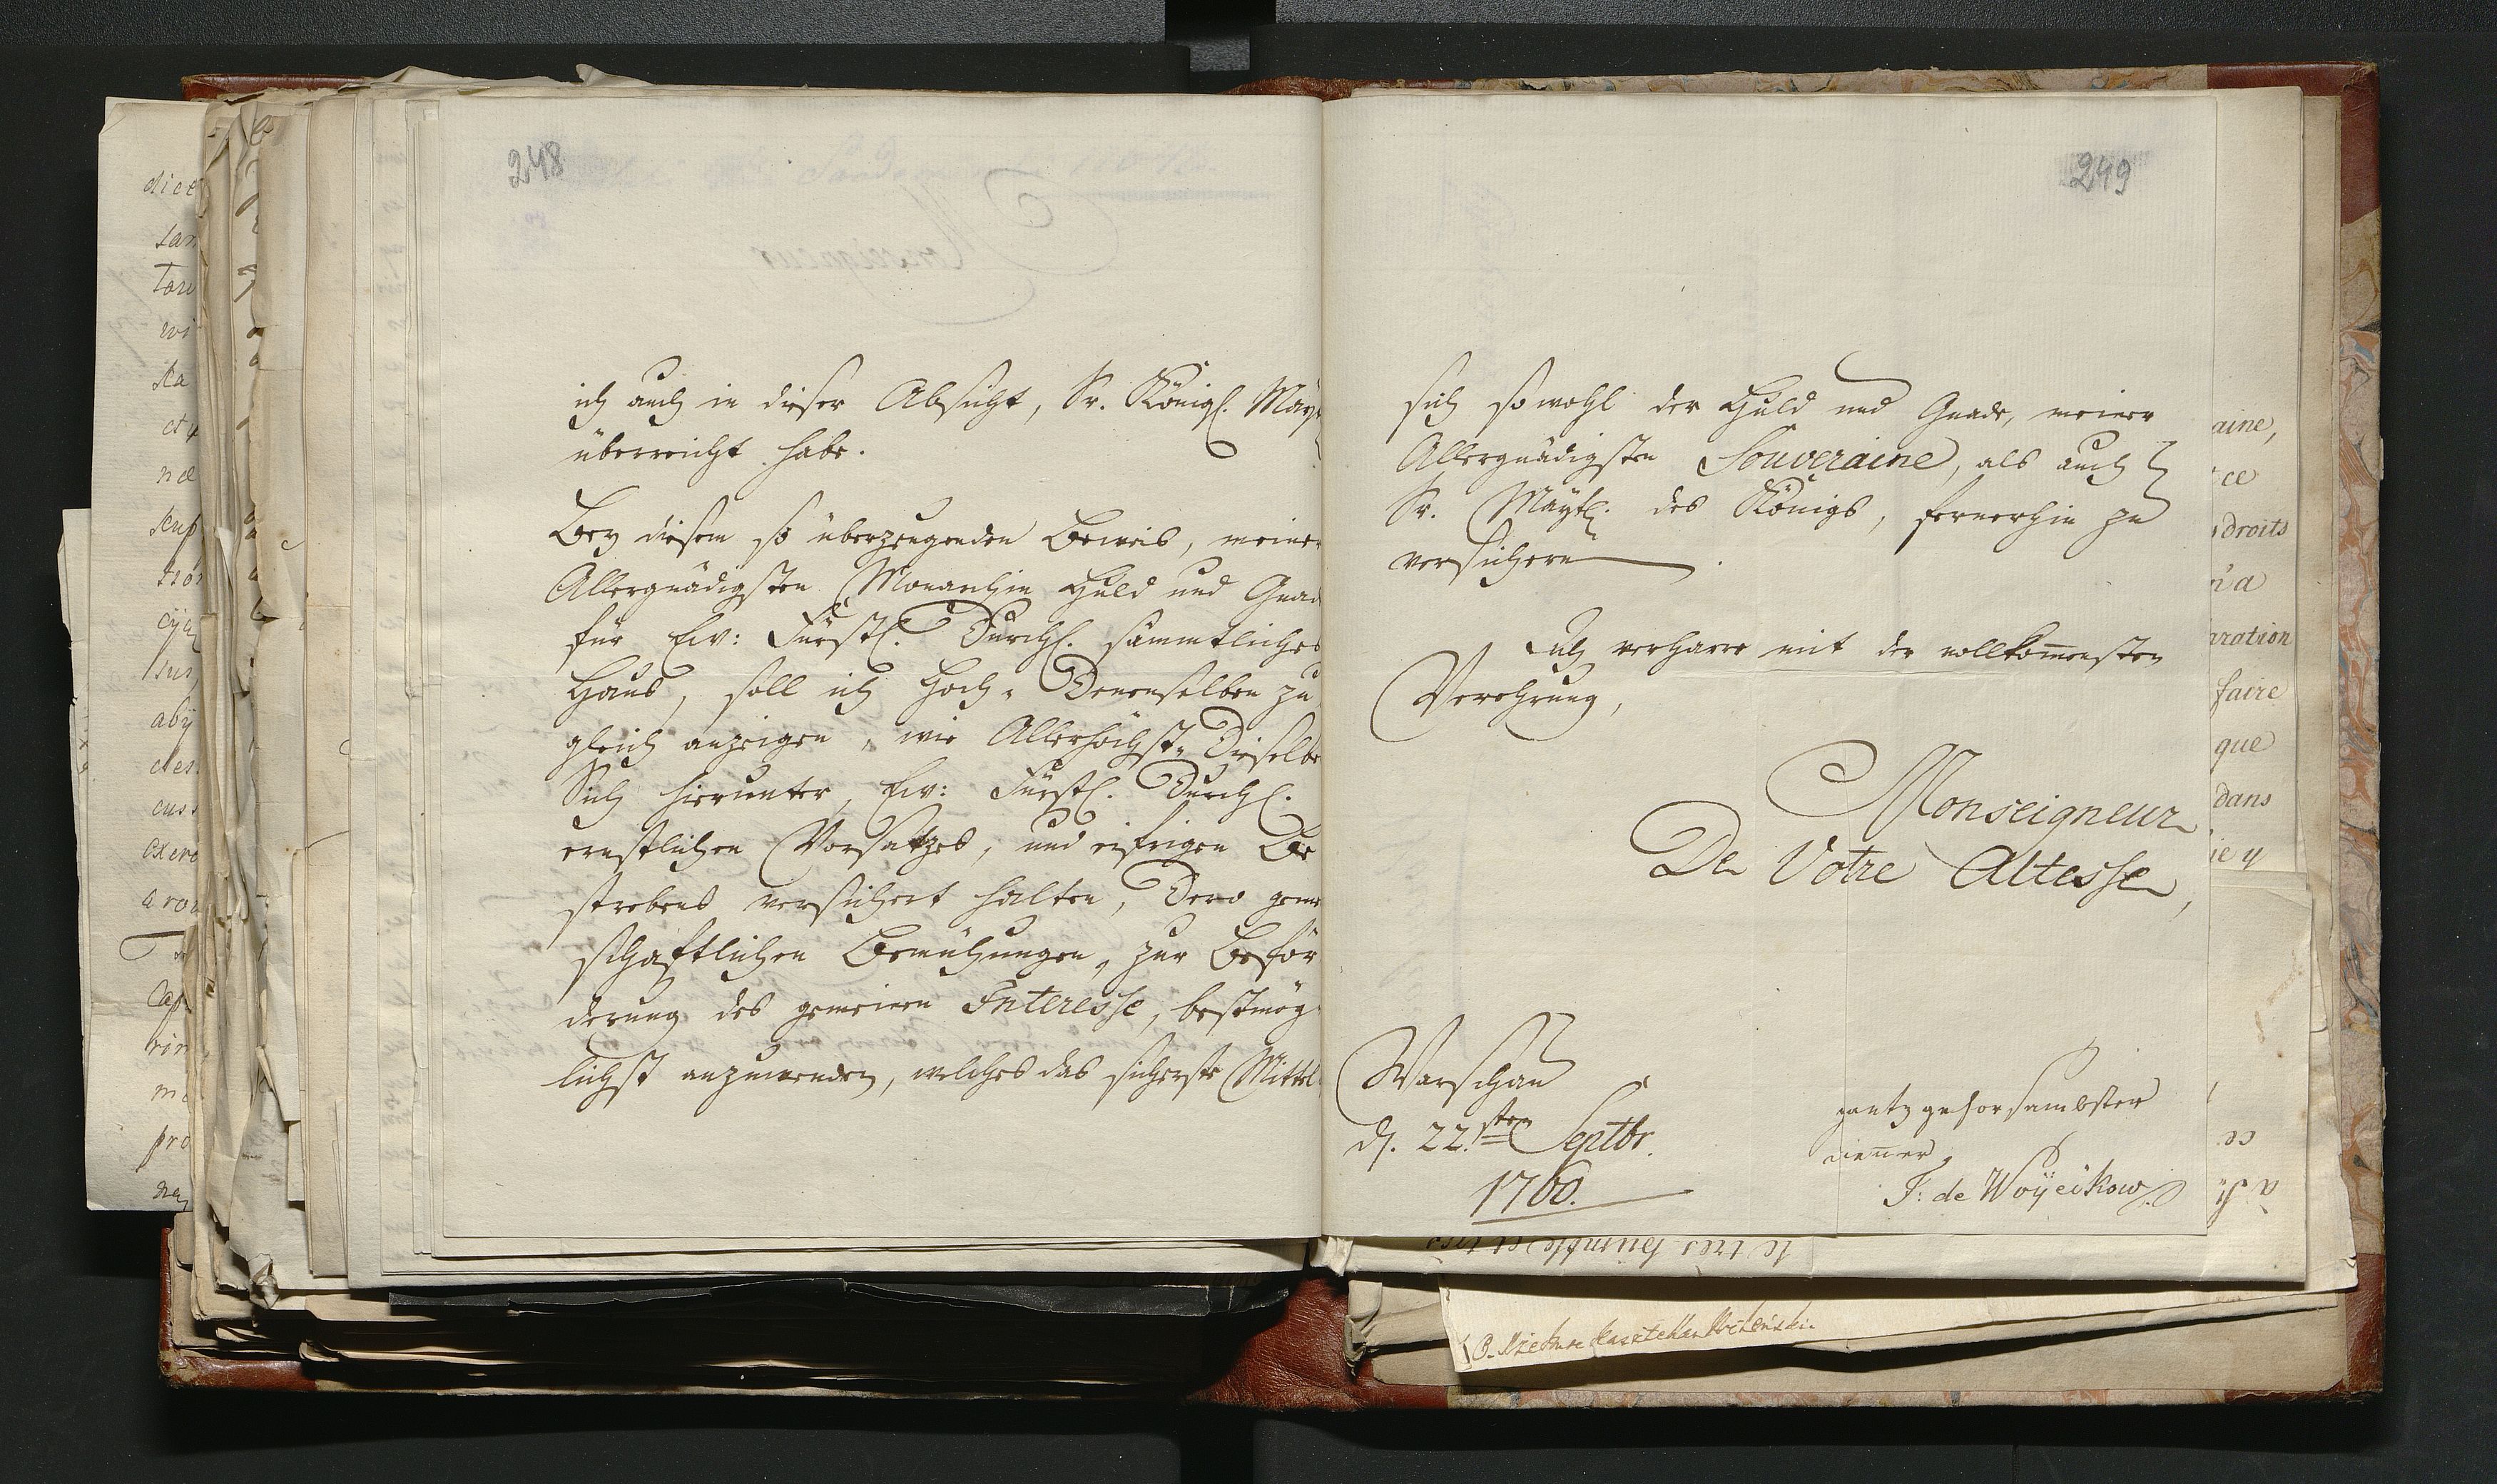 248
ich auch in dieser Absicht, Sr. Königl. Mayt
überreicht habe.
Bey diesem so überzeugenden Beweis, meiner
Allergnädigsten Monarchin Huld und Gnad
für Ew: Fürstl. Durchl. sämmtliches
Haus, soll ich Hoch- Denenselben zu
gleich anzeigen, wie Allerhöchst- Dieselbe
Sich hierunter, Ew: Fürstl. Durchl.
ernstlichen Vorsatzes, und eifrigen Be
strebens versichert halten, Dero gemein
schaftlichen Bemühungen, zur Beför
derung des gemeinen Interesse, bestmög
lichst anzuwenden, welches das sicherste Mittel
249
sich sowohl der Huld und Gnade, meiner
Allergnädigsten Souveraine, als auch
Sr. Maytl. des Königs, fernerhin zu
versichern.
Ich verharre mit der vollkom̅ensten
Verehrung,
Monseigneur
De Votre Altesse,
Warschau
d. 22.sten Septbr.
1760.
gantz gehorsambster
diener,
F: de Woyeikow
aine,
ce
droits
n'a
aration
faire
que
dans
ie y
le tres humble et tres